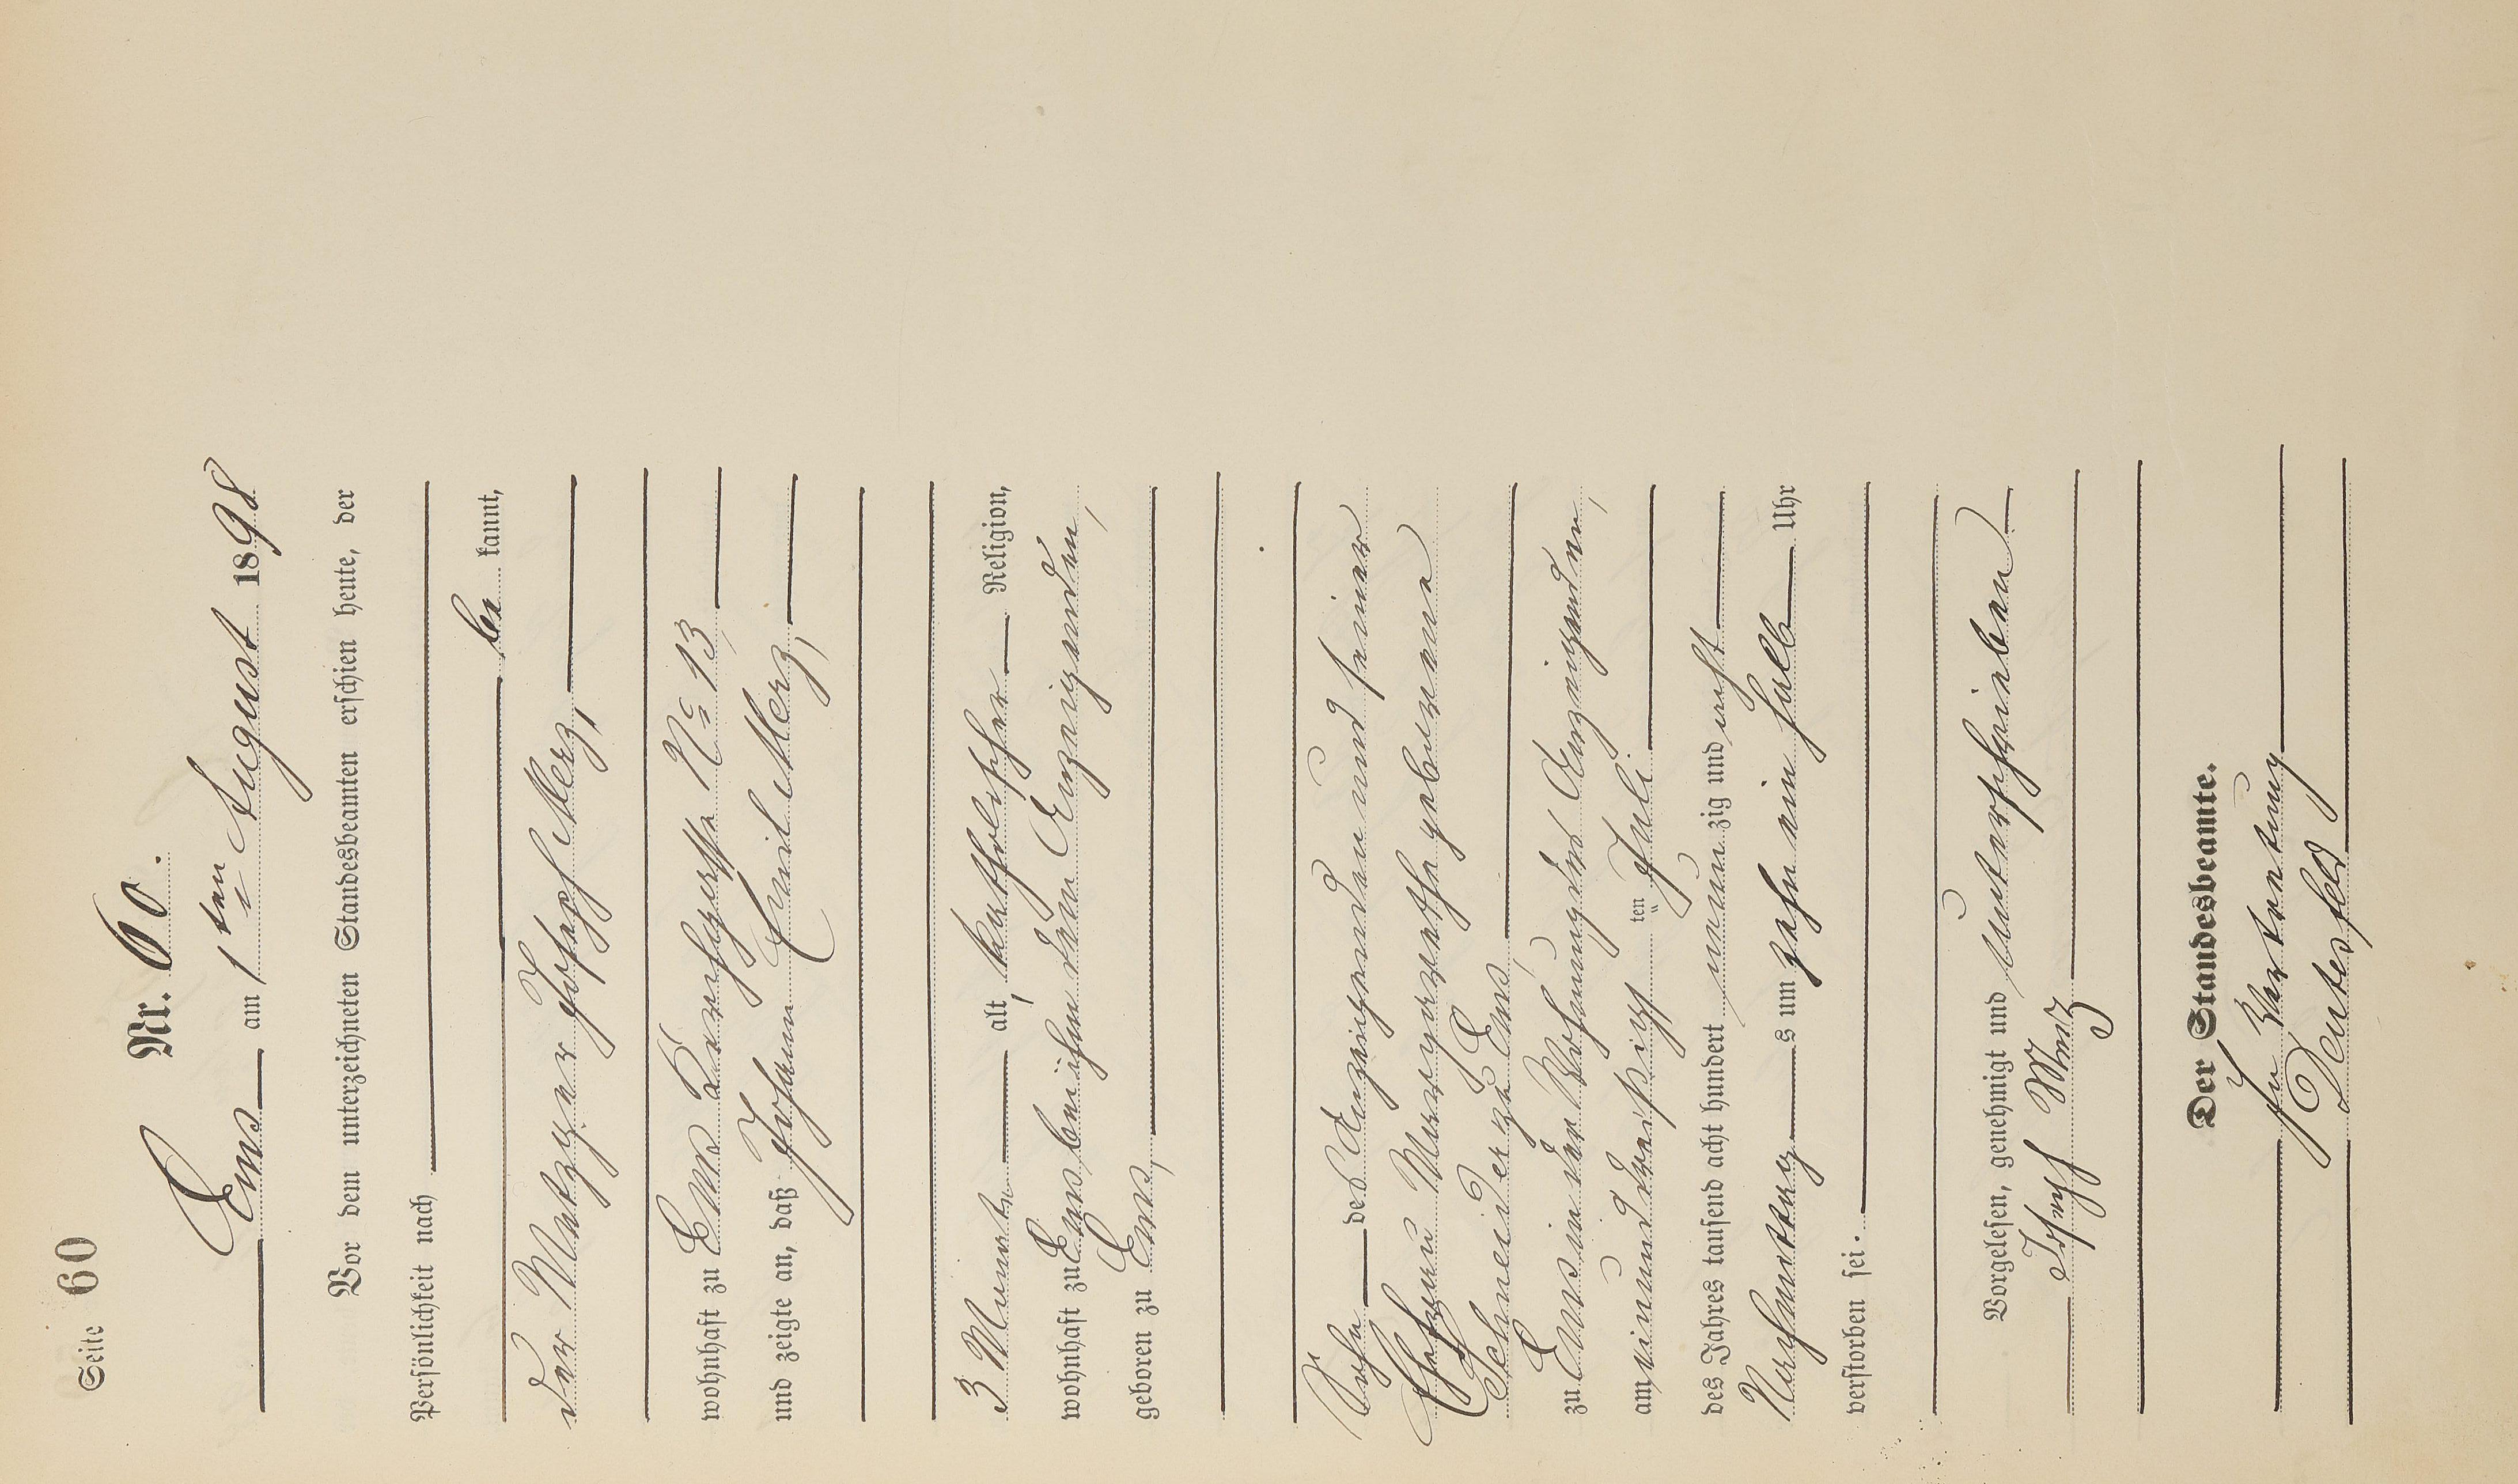 Seite 60
Nr. 60.
Ems am 1ten August 1898
Vor dem unterzeichneten Standesbeamten erschien heute, der
Persönlichkeit nach
be kannt,
der Metzger Joseph Merz,
wohnhaft zu Ems No 13
und zeigte an, daß Johann Emil Merz,
3 Monate alt, katholischer Religion,
wohnhaft zu Ems bei ihm dem Anzeigenden,
geboren zu Ems,
Sohn des Anzeigenden und seiner
Ehefrau Margarethe geborene
Schneider zu Ems,
zu Ems in der Wohnung des Anzeigenden,
am einunddreißigsten Juli
des Jahres tausend acht hundert neunzig und acht
Nachmittags um zehn ein halb Uhr
verstorben sei.
Vorgelesen, genehmigt und unterschrieben
Joseph Merz
Der Standesbeamte.
In Vertretung